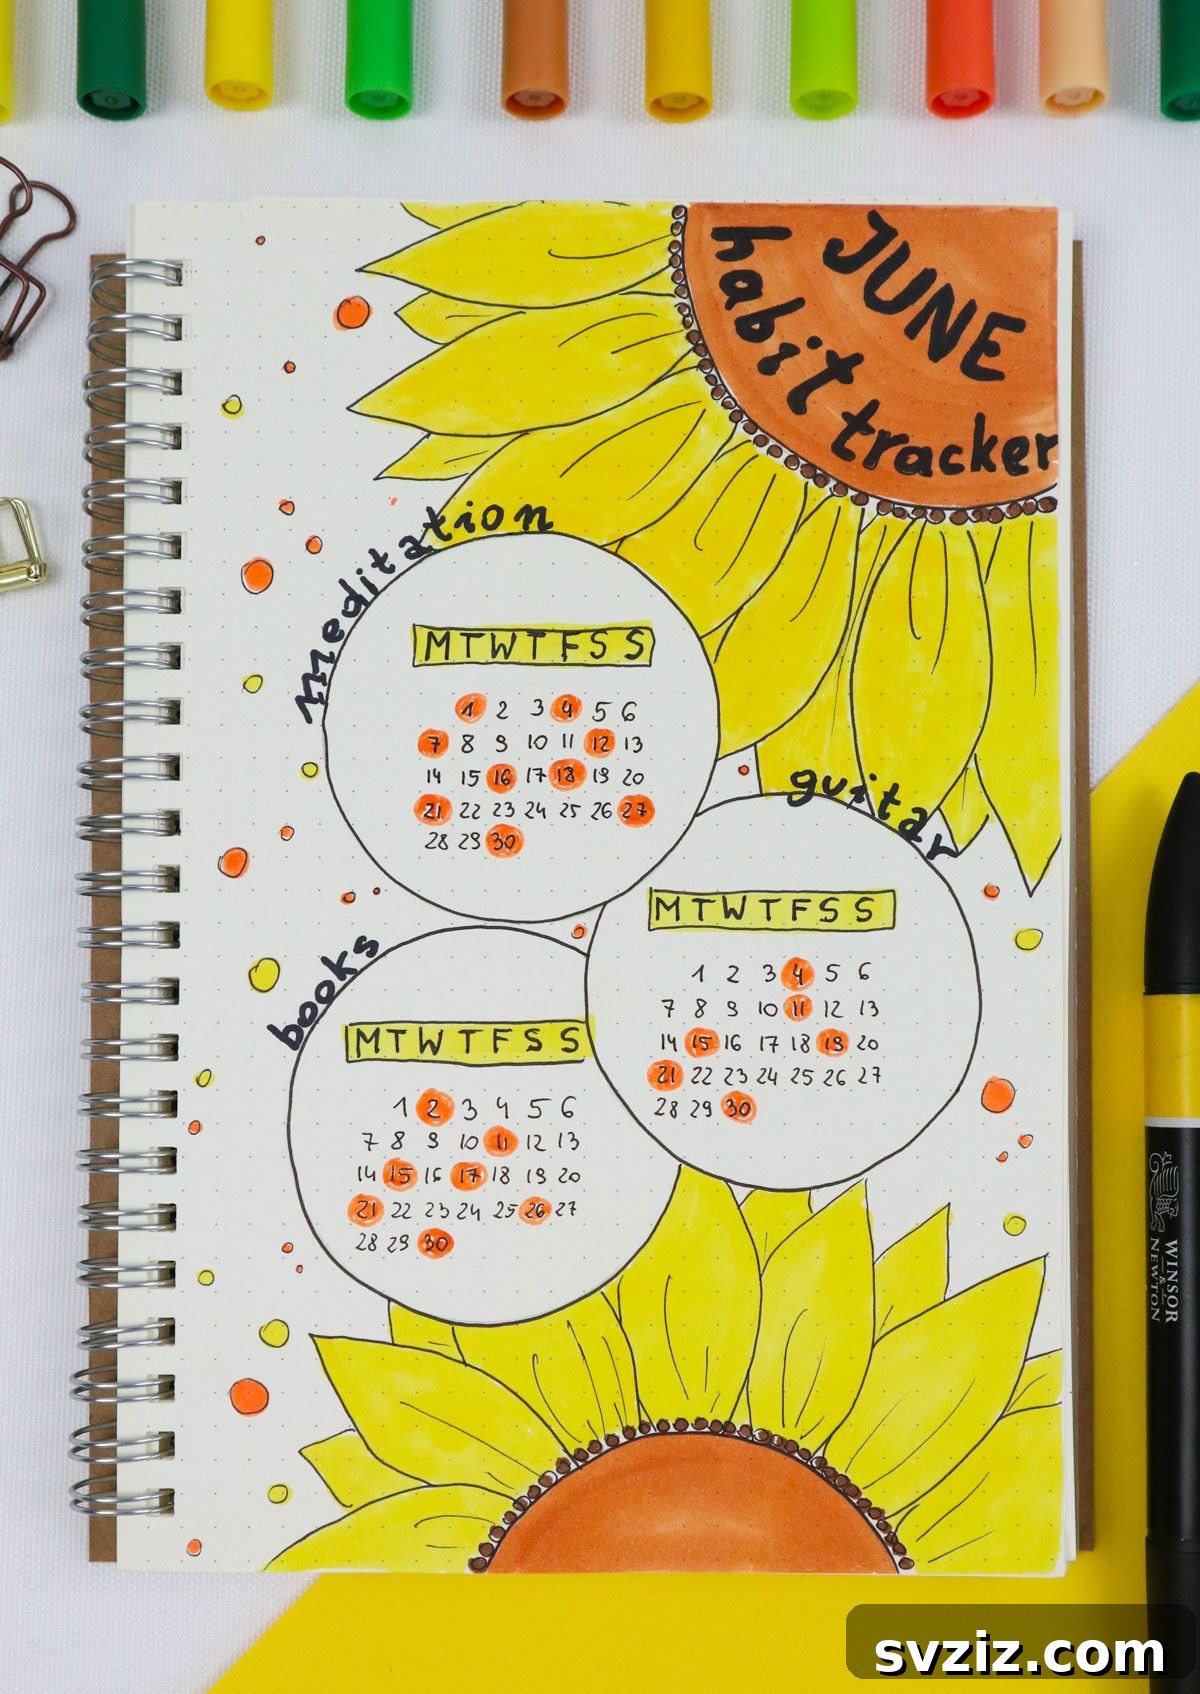 JUNE
habit tracker
meditation
M T W T F S S
1 2 3 4 5 6
7 8 9 10 11 12 13
14 15 16 17 18 19 20
21 22 23 24 25 26 27
28 29 30
guitar
M T W T F S S
1 2 3 4 5 6
7 8 9 10 11 12 13
14 15 16 17 18 19 20
21 22 23 24 25 26 27
28 29 30
books
M T W T F S S
1 2 3 4 5 6
7 8 9 10 11 12 13
14 15 16 17 18 19 20
21 22 23 24 25 26 27
28 29 30
WINSOR
&
NEWTON
svziz.com